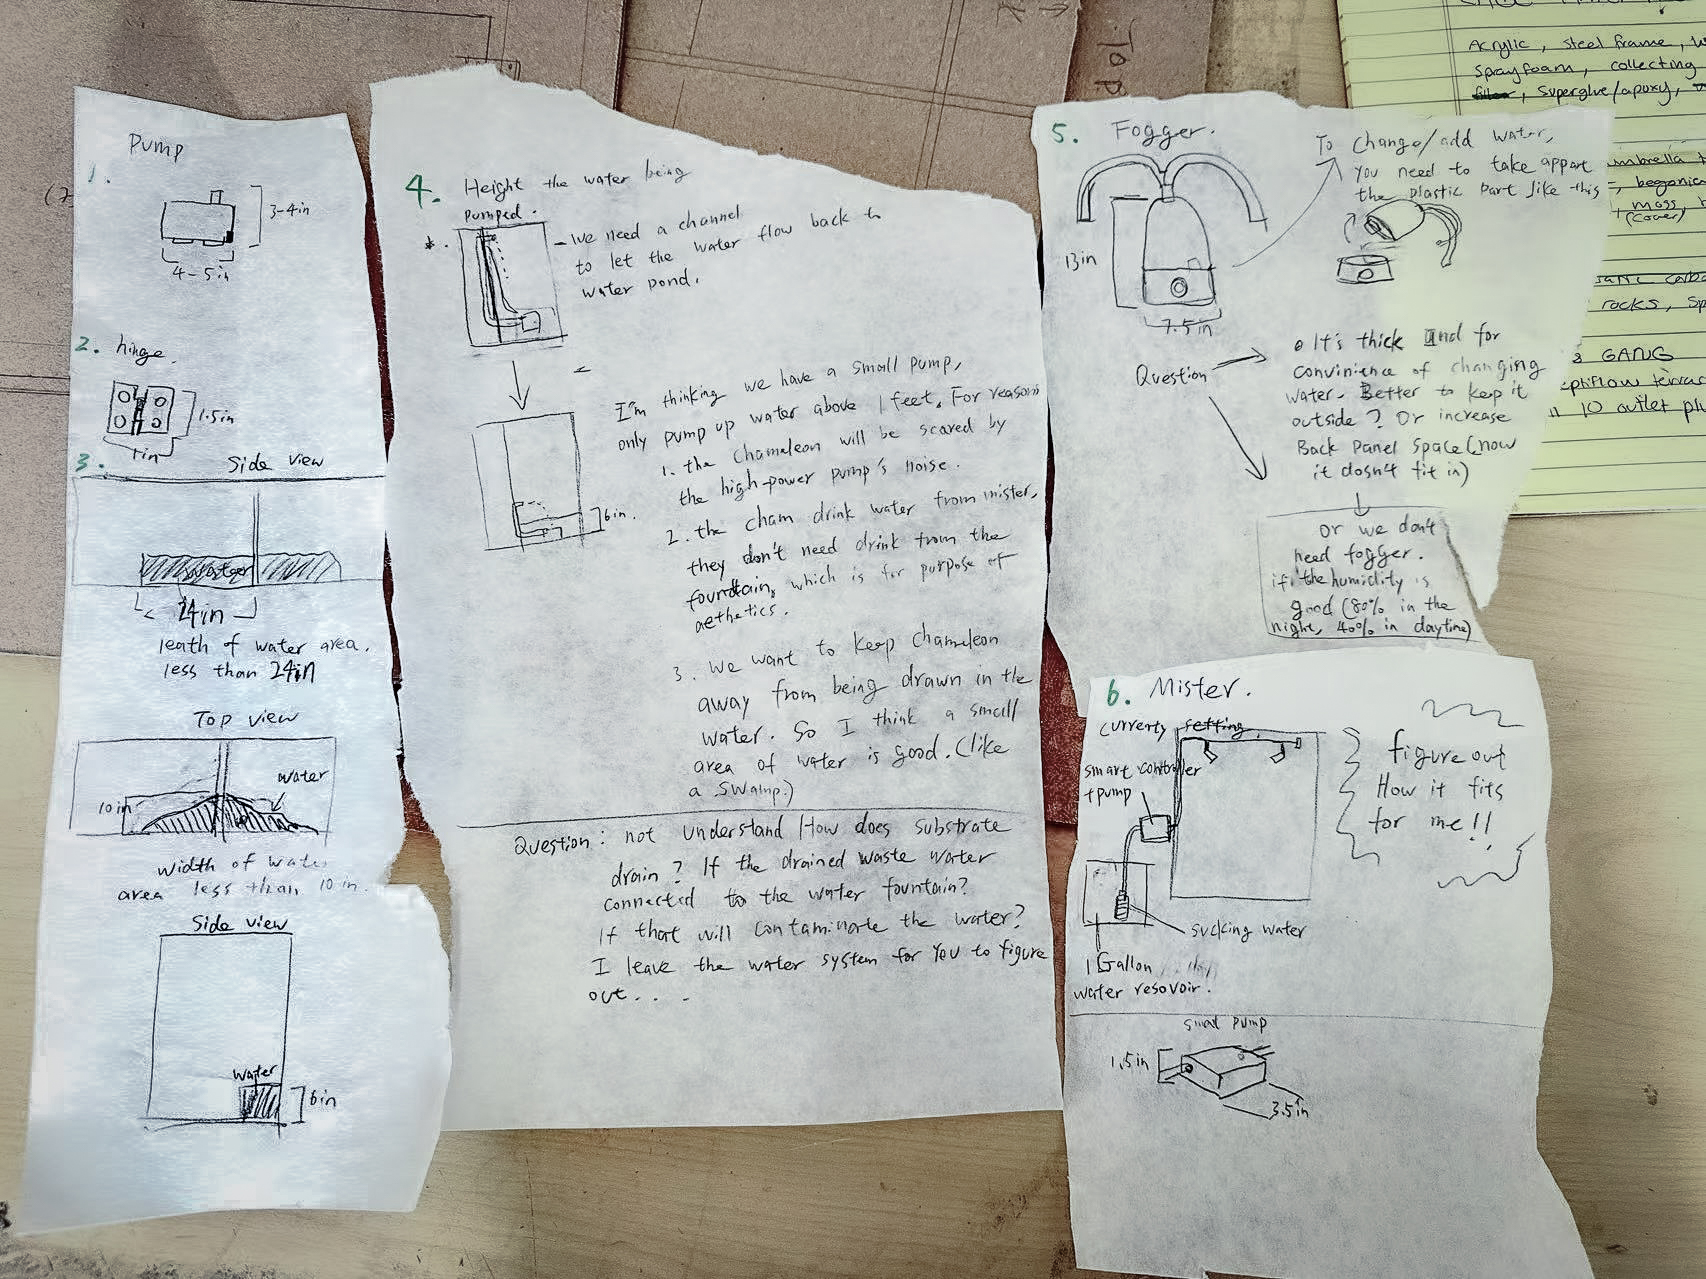 Pump
1.
3-4in
4-5in
2. hinge.
1.5in
1in
3.
Side view
water
24in
leath of water area.
less than 24in
Top view
water
10in
width of water
area less than 10 in.
Side view
water
6in
4. Height the water being
pumped.
- We need a channel
to let the water flow back to
water pond.
6in.
I'm thinking we have a small pump,
only pump up water above 1 feet. For reason
1. the chameleon will be scared by
the high-power pump's noise.
2. the cham drink water from mister,
they don't need drink from the
fountain, which is for purpose of
aethetics.
3. We want to keep chameleon
away from being drawn in the
water. So I think a small
area of water is good. (like
a swamp.)
Question: not understand How does substrate
drain? If the drained waste water
connected to the water fountain?
If that will contaminate the water?
I leave the water system for you to figure
out....
5. Fogger.
13in
7.5in
To Change/add water,
You need to take appart
the plastic part like this
Question
It's thick and for
convinience of changing
water. Better to keep it
outside? Or increase
Back panel space (now
it dosn't fit in)
Or we don't
need fogger.
if the humidity is
good (80% in the
night, 40% in daytime)
6. Mister.
currenty setting
smart controller
+pump
sucking water
1 Gallon
water resovoir.
figure out
How it fits
for me!!
small pump
1.5in
3.5in
TOP
Acrylic, steel frame,
Sprayfoam, collecting
filter, superglue/apoxy,
umbrella
begonia
moss,
(cover)
rocks,
GANG
10 outlet